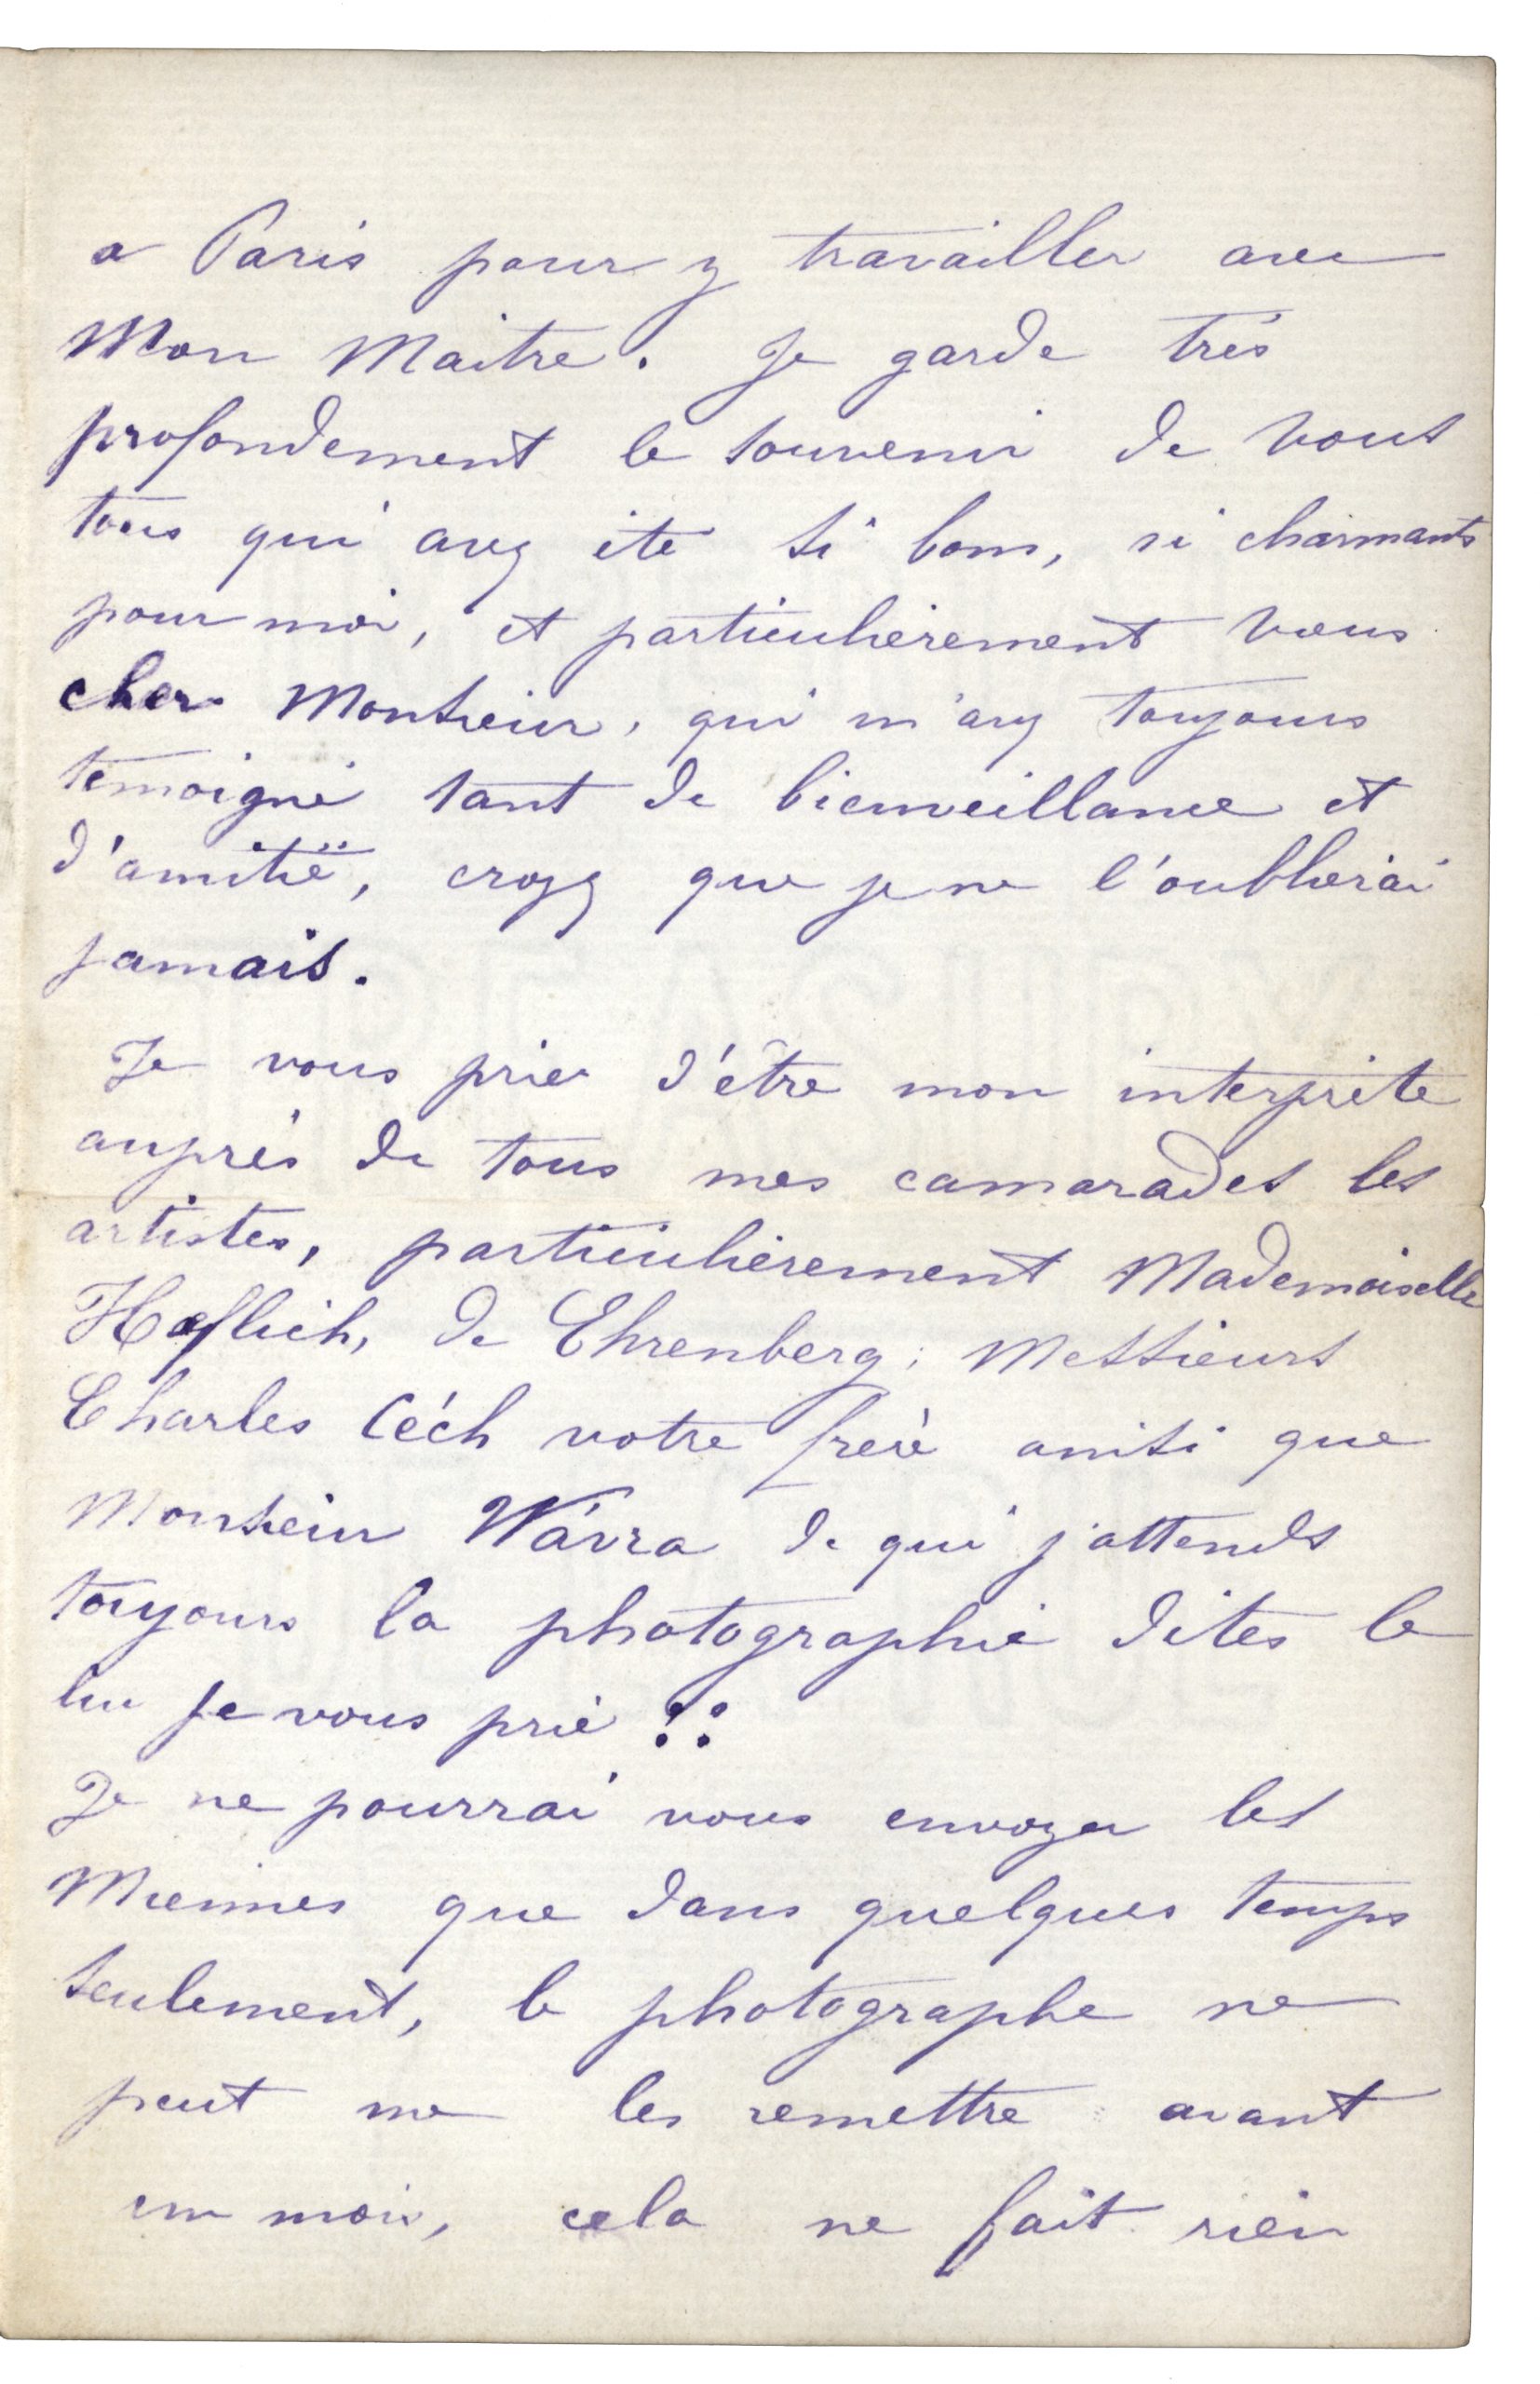 a Paris pour y travailler avec
Mon Maitre. Je garde très
profondement le souvenir de vous
tous qui avez ète si bons, si charmants
pour moi, et particulièrement vous
cher Monsieur, qui m'avez toujours
témoigné tant de bienveillance et
d'amitië, croyez que je ne l'oublierai
jamais.
Je vous prier d'être mon interprète
auprès de tous mes camarades les
artistes, particulièrement Mademoiselle
Hoflich, de Ehrenberg; Messieurs
Charles Céch votre frère ainsi que
Monsieur Wávra de qui j'attends
toujours la photographie dites le
lui je vous prie !!
Je ne pourrai vous envoyer les
Miennes que dans quelques temps
seulement, le photographe ne
peut me les remettre avant
un mois, cela ne fait rien